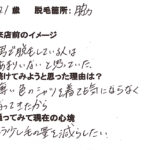 21歳 脱毛箇所:脇
来店前のイメージ
脱毛している人は
あまりいないと思っていた。
続けてみようと思った理由は?
薄い色のシャツを着ても気にならなく
なってきたから
通ってみて現在の心境
もう少し毛の量を減らしたい。